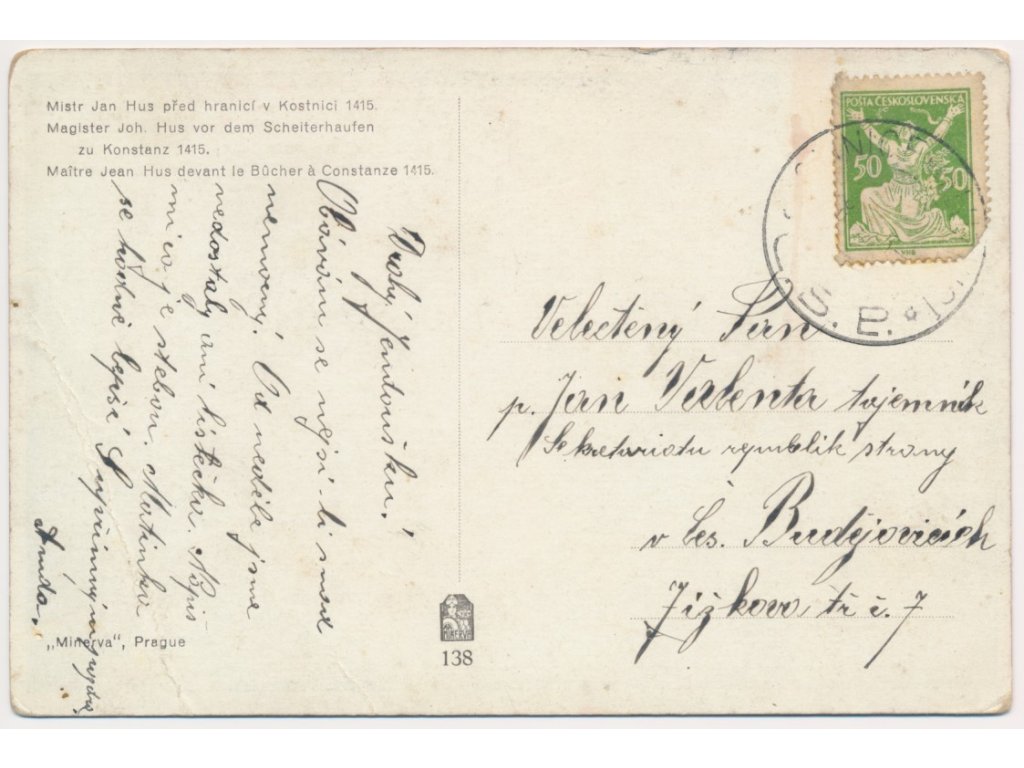 Mistr Jan Hus před hranicí v Kostnici 1415.
Magister Joh. Hus vor dem Scheiterhaufen
zu Konstanz 1415.
Maître Jean Hus devant le Bûcher à Constanze 1415.
POŠTA ČESKOSLOVENSKA
50 50
Drahý Jendoušku!
Obávám se nejsi-li snad
nemocný. Od neděle jsme
nedostaly ani lístečku. Napiš
mi co je s tebou. Matinka
se hodně lepší S upřímným
Anda.
Velectěný Pan
p. Jan Valenta tajemník
Sekretariatu republik strany
v Čes. Budějovicích
Žižkova tř č. 7
„Minerva", Prague
138